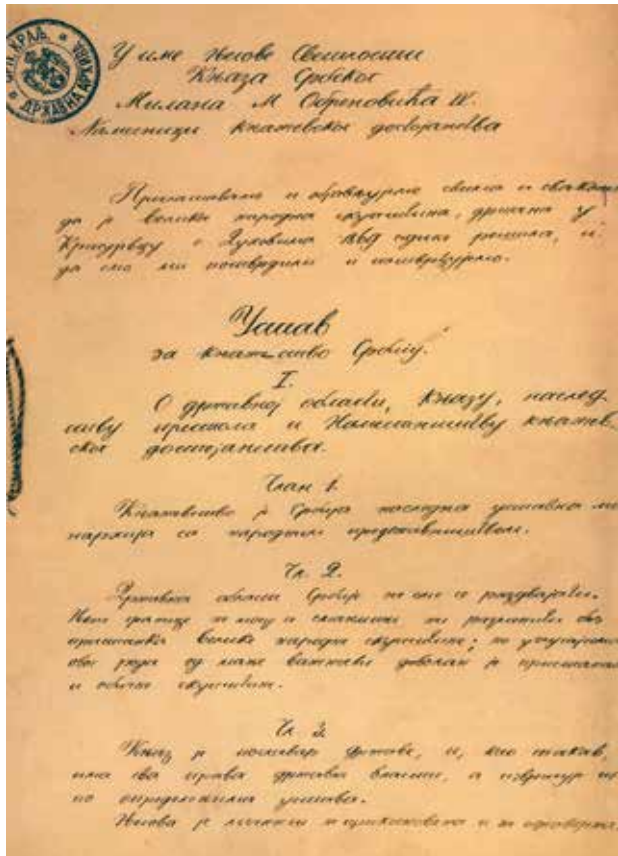 КРАЉ.
ДРЖАВНА АРХИВА
У име Његове Светлости
Књаза Србског
Милана М Обреновића IV.
Намесници књажевског достојанства
и објављујемо свима и
да је велика народна скупштина, држана у
Крагујевцу о Духовима
да смо ми потврдили и потврђујемо.
Устав
за књажество Србију.
I.
О државној области, књазу, наслед-
ству престола и Намесништву књажев-
ског достојанства.
Члан 1.
Књажество је Србија наследна уставна мо-
нархија са народним представништвом.
Чл. 2.
Државна област Србије не сме се раздвајати.
Њене границе не могу се смањити ни разменити без
пристанка велике народне скупштине; но
од мање важности довољан је
и обичне скупштине.
Чл. 3.
Књаз је поглавар државе, и, као такав,
има сва права државне власти, а
по определењима устава.
Његова је личност неприкосновена и не одговара.